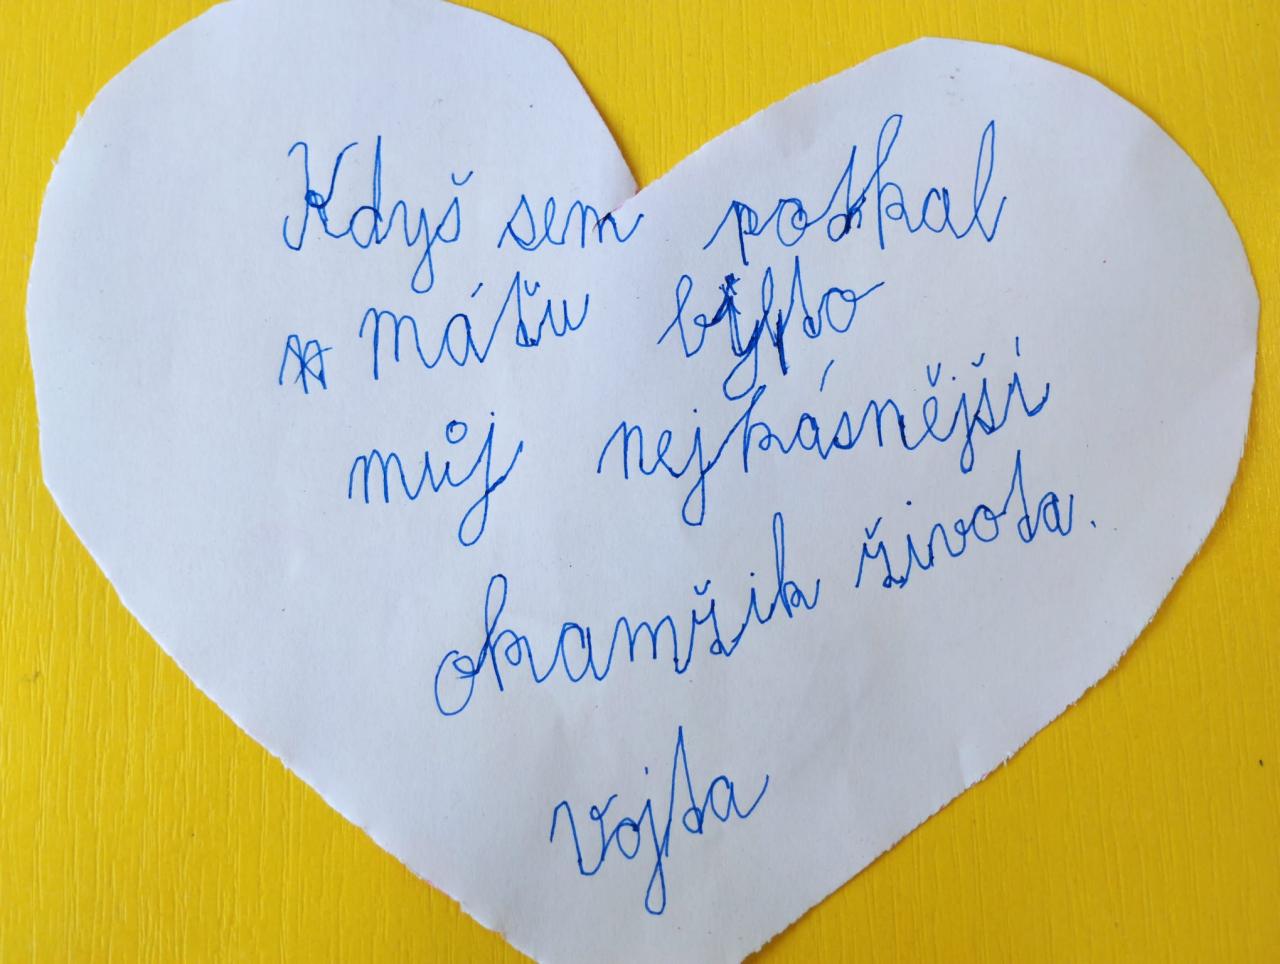 Kdyš sem potkal
Máťu byjto
můj nejkásnější
okamžik života.
Vojta